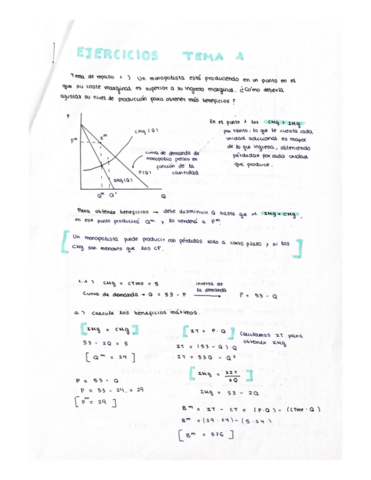 EJERCICIOS TEMA A
Tema de repaso 1) Un monopolista está produciendo en un punto en el
que su coste marginal es superior a su ingreso marginal. ¿Cómo debería
ajustar su nivel de producción para obtener más beneficios?
P
CMg(Q)
Pᵐ
curva de demanda de
monopolio precio en
función de la
cantidad
P(Q)
IMg(Q)
Qᵐ Q' Q
En el punto 1 los CMg > IMg
por tanto, lo que le cuesta cada
unidad adicional es mayor
de lo que ingresa, obteniendo
pérdidas por cada unidad
que produce.
Para obtener beneficios → debe disminuir Q hasta que el IMg = CMg,
en ese punto producirá Qᵐ y lo venderá a Pᵐ.
[ Un monopolista puede producir con pérdidas solo a corto plazo y si las
CMg son menores que los CF. ]
CMg = CTMe = 5
Curva de demanda → Q = 53 - P
inversa de
la demanda
P = 53 - Q
a.) Calcule los beneficios máximos.
[ IMg = CMg ]
53 - 2Q = 5
[ Qᵐ = 24 ]
P = 53 - Q
P = 53 - 24 = 29
[ Pᵐ = 29 ]
[ IT = P · Q ]
Calculamos IT para
obtener IMg
IT = (53 - Q) · Q
IT = 53Q - Q²
[ IMg = ∂IT / ∂Q ]
IMg = 53 - 2Q
Bᵐ = IT - CT = (P·Q) - (CTMe · Q)
Bᵐ = (29·24) - (5·24)
[ Bᵐ = 576 ]